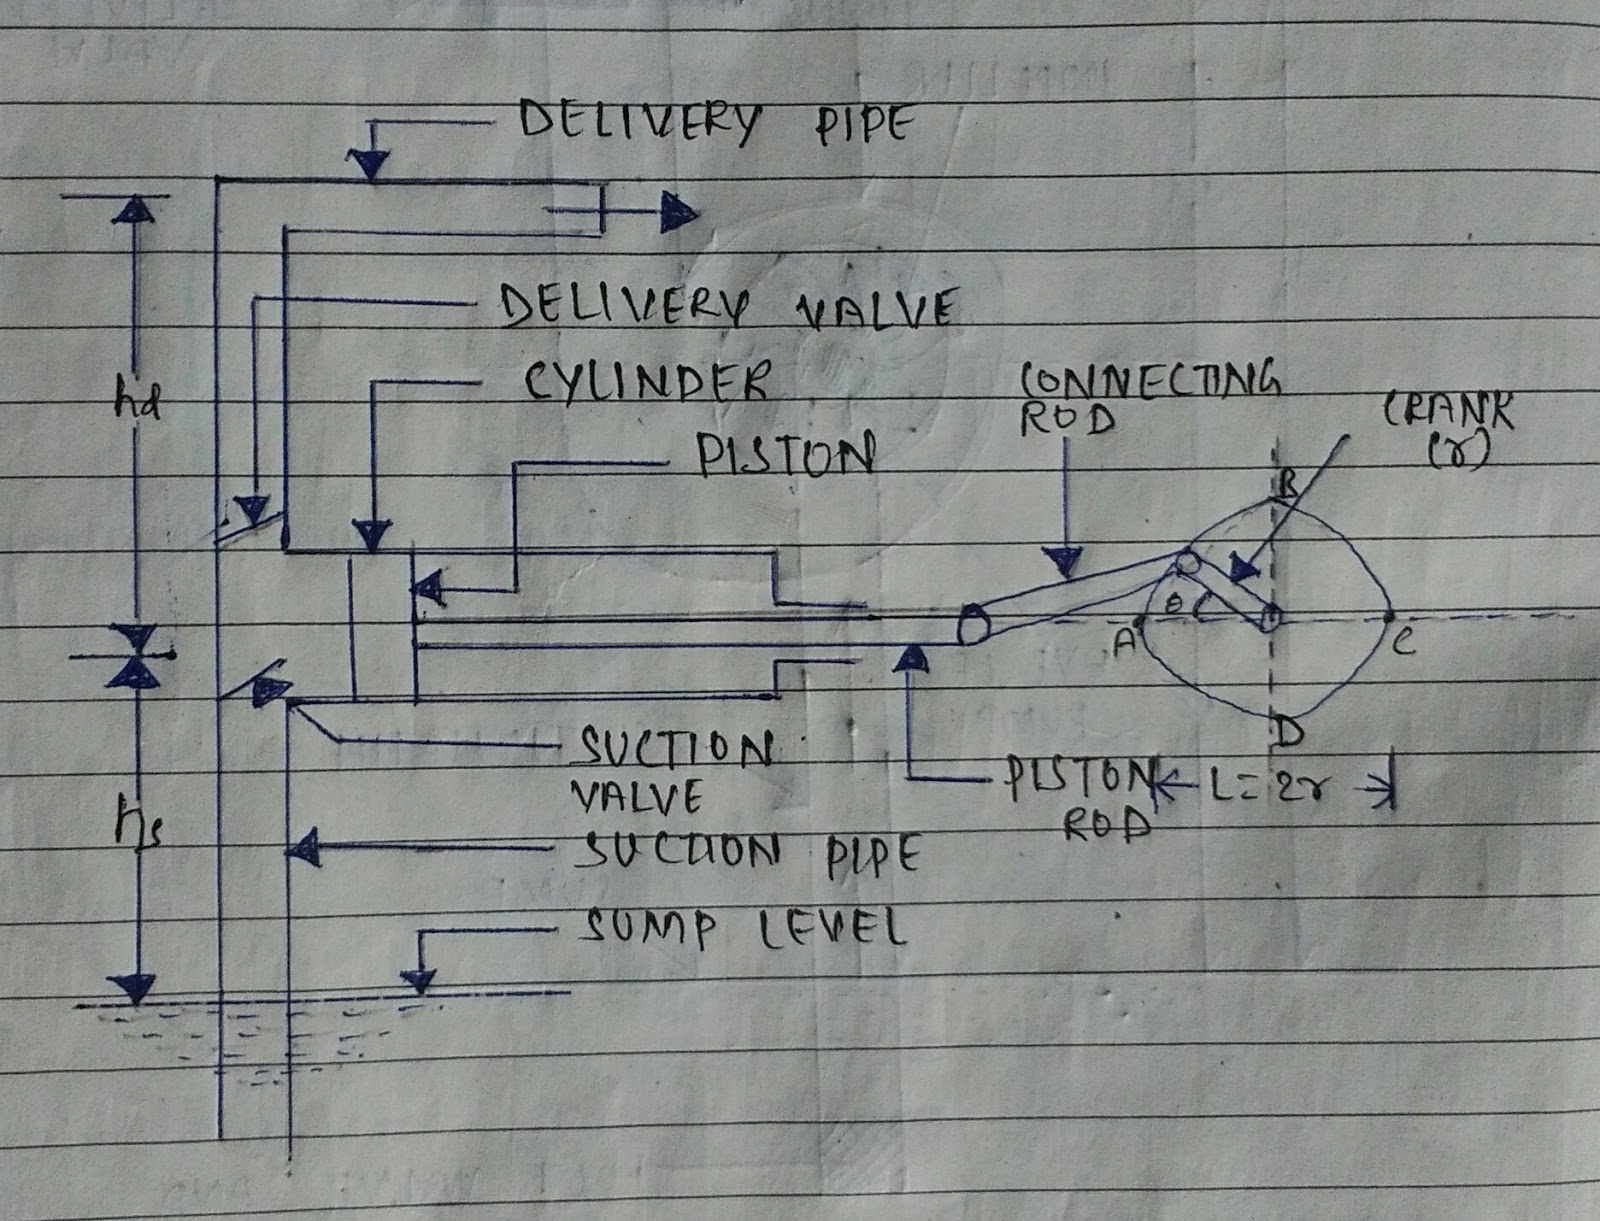 DELIVERY PIPE
DELIVERY VALVE
CYLINDER
CONNECTING
ROD
CRANK
(r)
PISTON
hd
B
θ
A
C
D
SUCTION
VALVE
PISTON
ROD
L=2r
hs
SUCTION PIPE
SUMP LEVEL